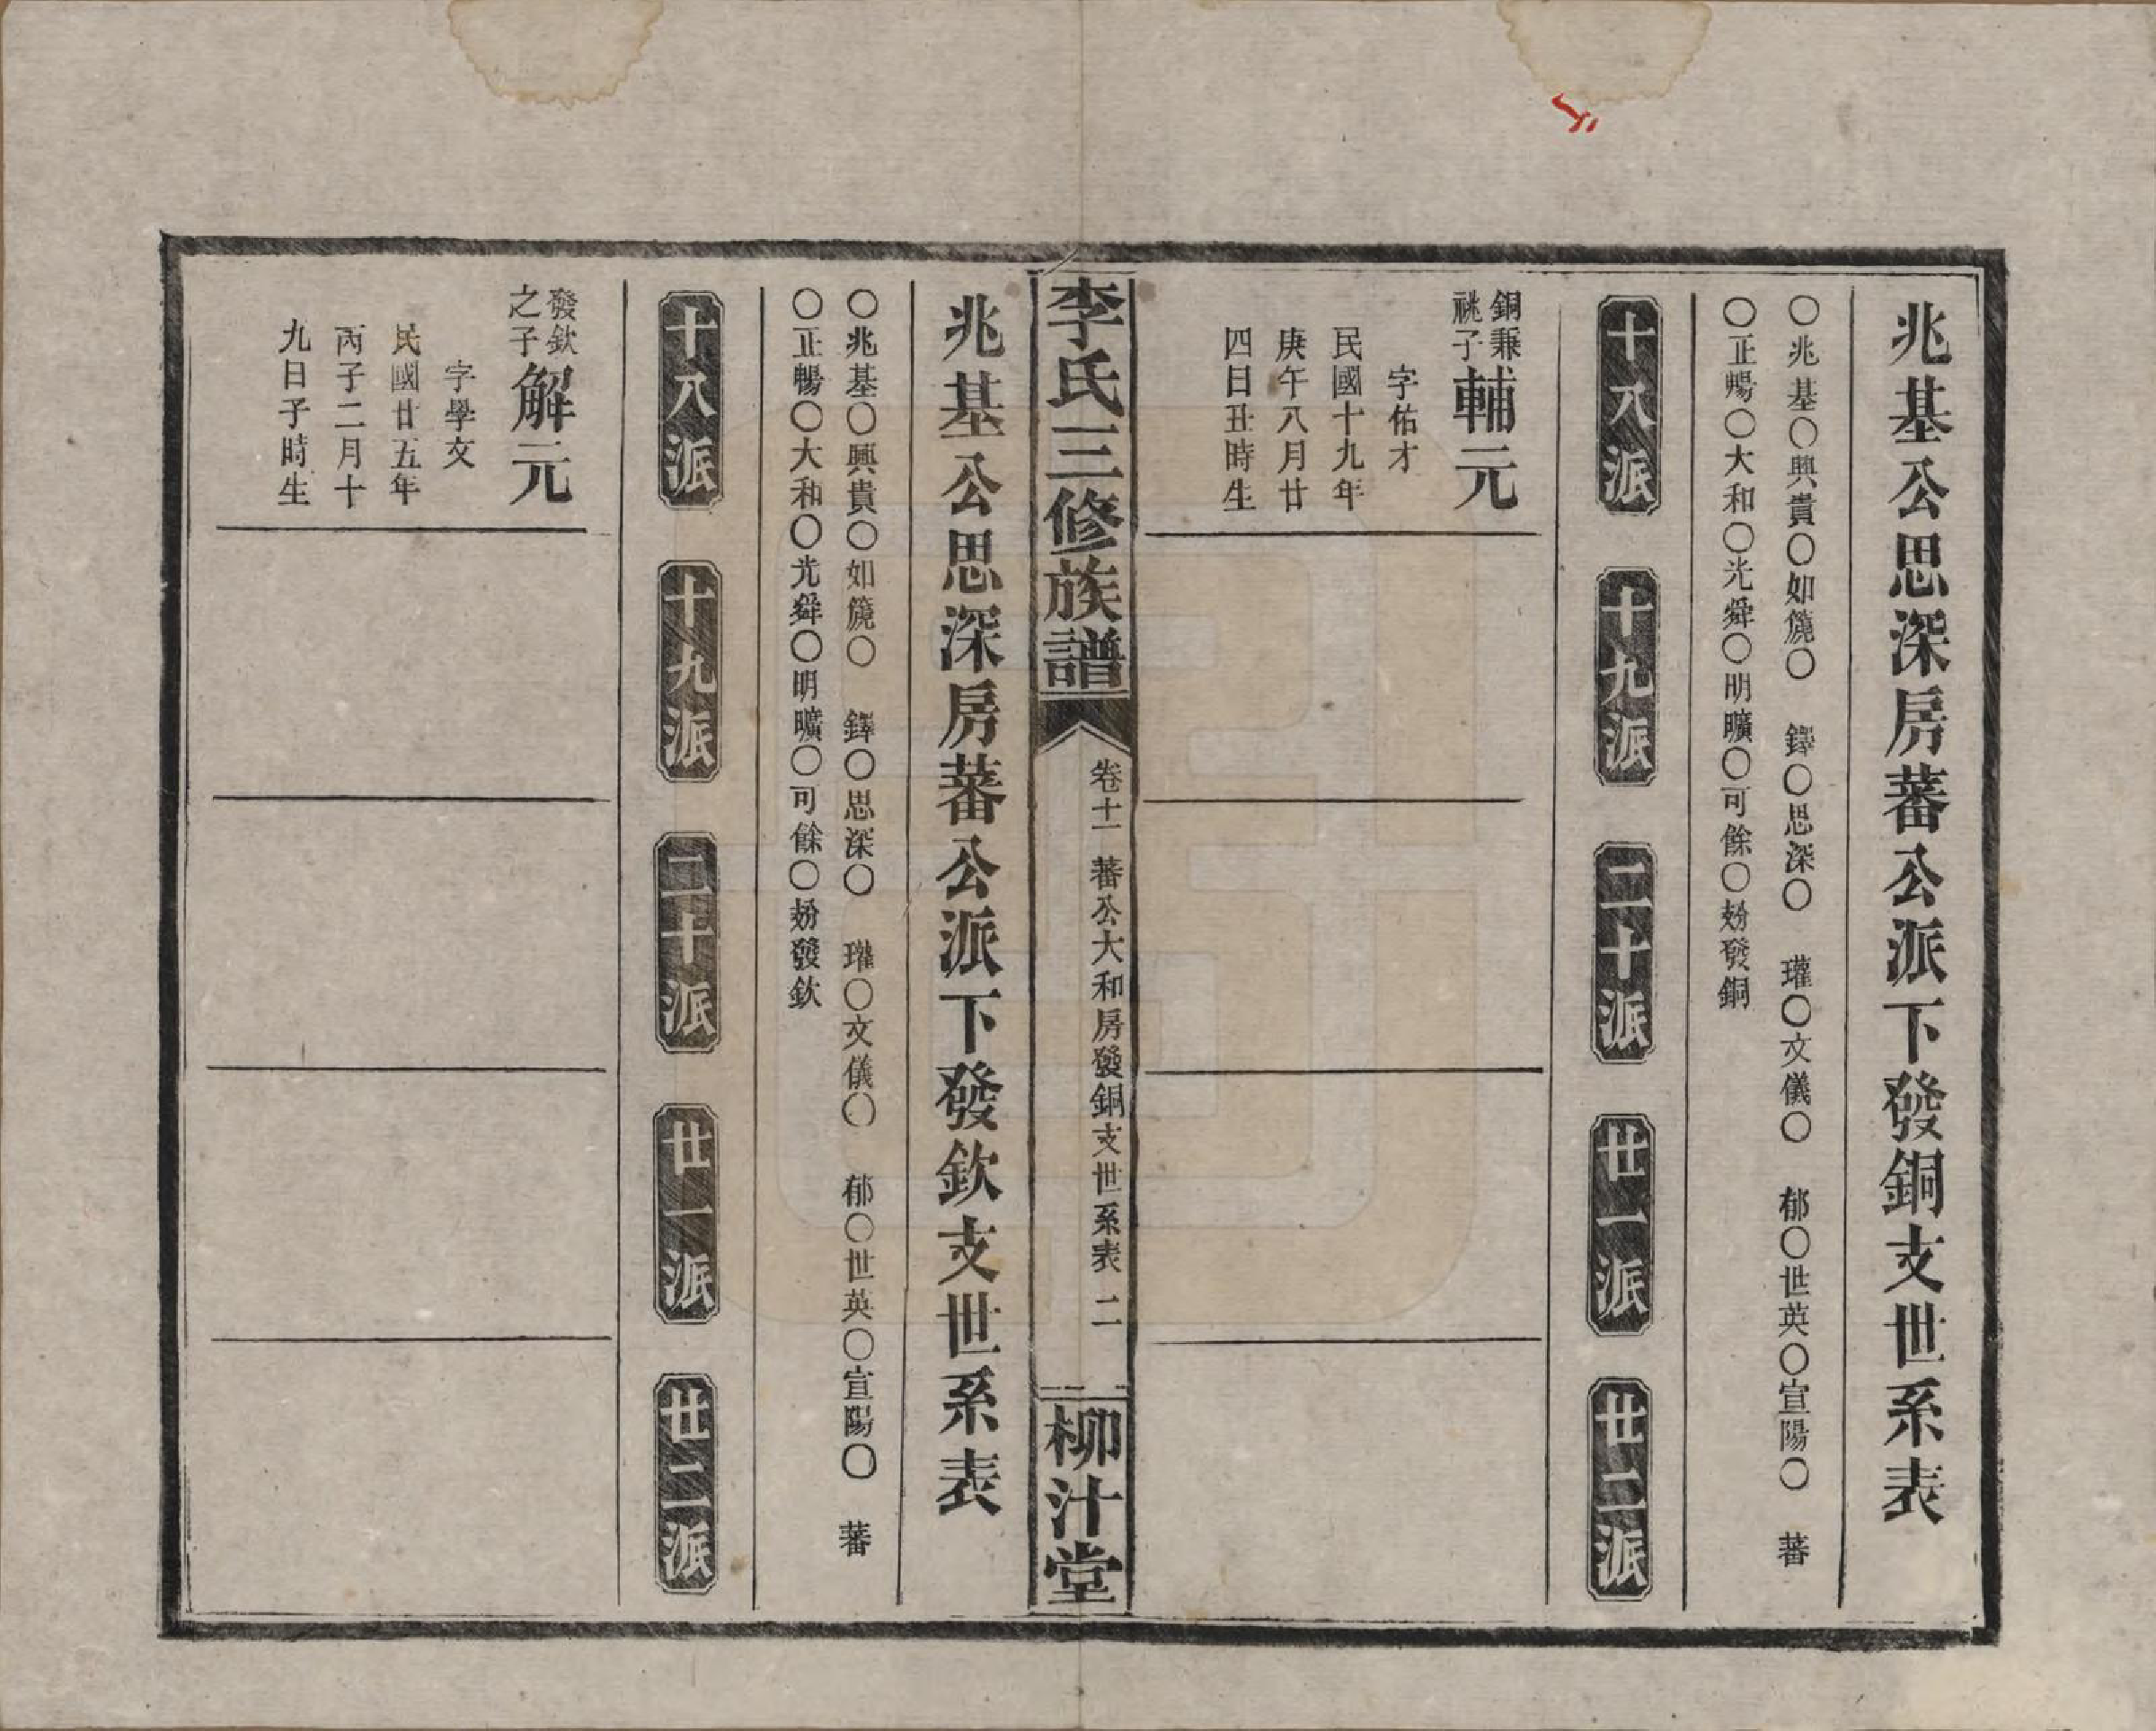 兆基公思深房蕃公派下發銅支世系表
〇兆基〇興貴〇如籠〇　鐸〇思深〇　瓘〇文儀〇　郁〇世英〇宣陽〇　蕃
〇正暢〇大和〇光舜〇明曠〇可餘〇㛃發銅
十八派　十九派　二十派　廿一派　廿二派
銅兼
祧子
輔元
字佑才
民國十九年
庚午八月廿
四日丑時生
李氏三修族譜　卷十一　蕃公大和房發銅支世系表　二　柳汁堂
兆基公思深房蕃公派下發欽支世系表
〇兆基〇興貴〇如籠〇　鐸〇思深〇　瓘〇文儀〇　郁〇世英〇宣陽〇　蕃
〇正暢〇大和〇光舜〇明曠〇可餘〇㛃發欽
十八派　十九派　二十派　廿一派　廿二派
發欽
之子
解元
字學文
民國廿五年
丙子二月十
九日子時生